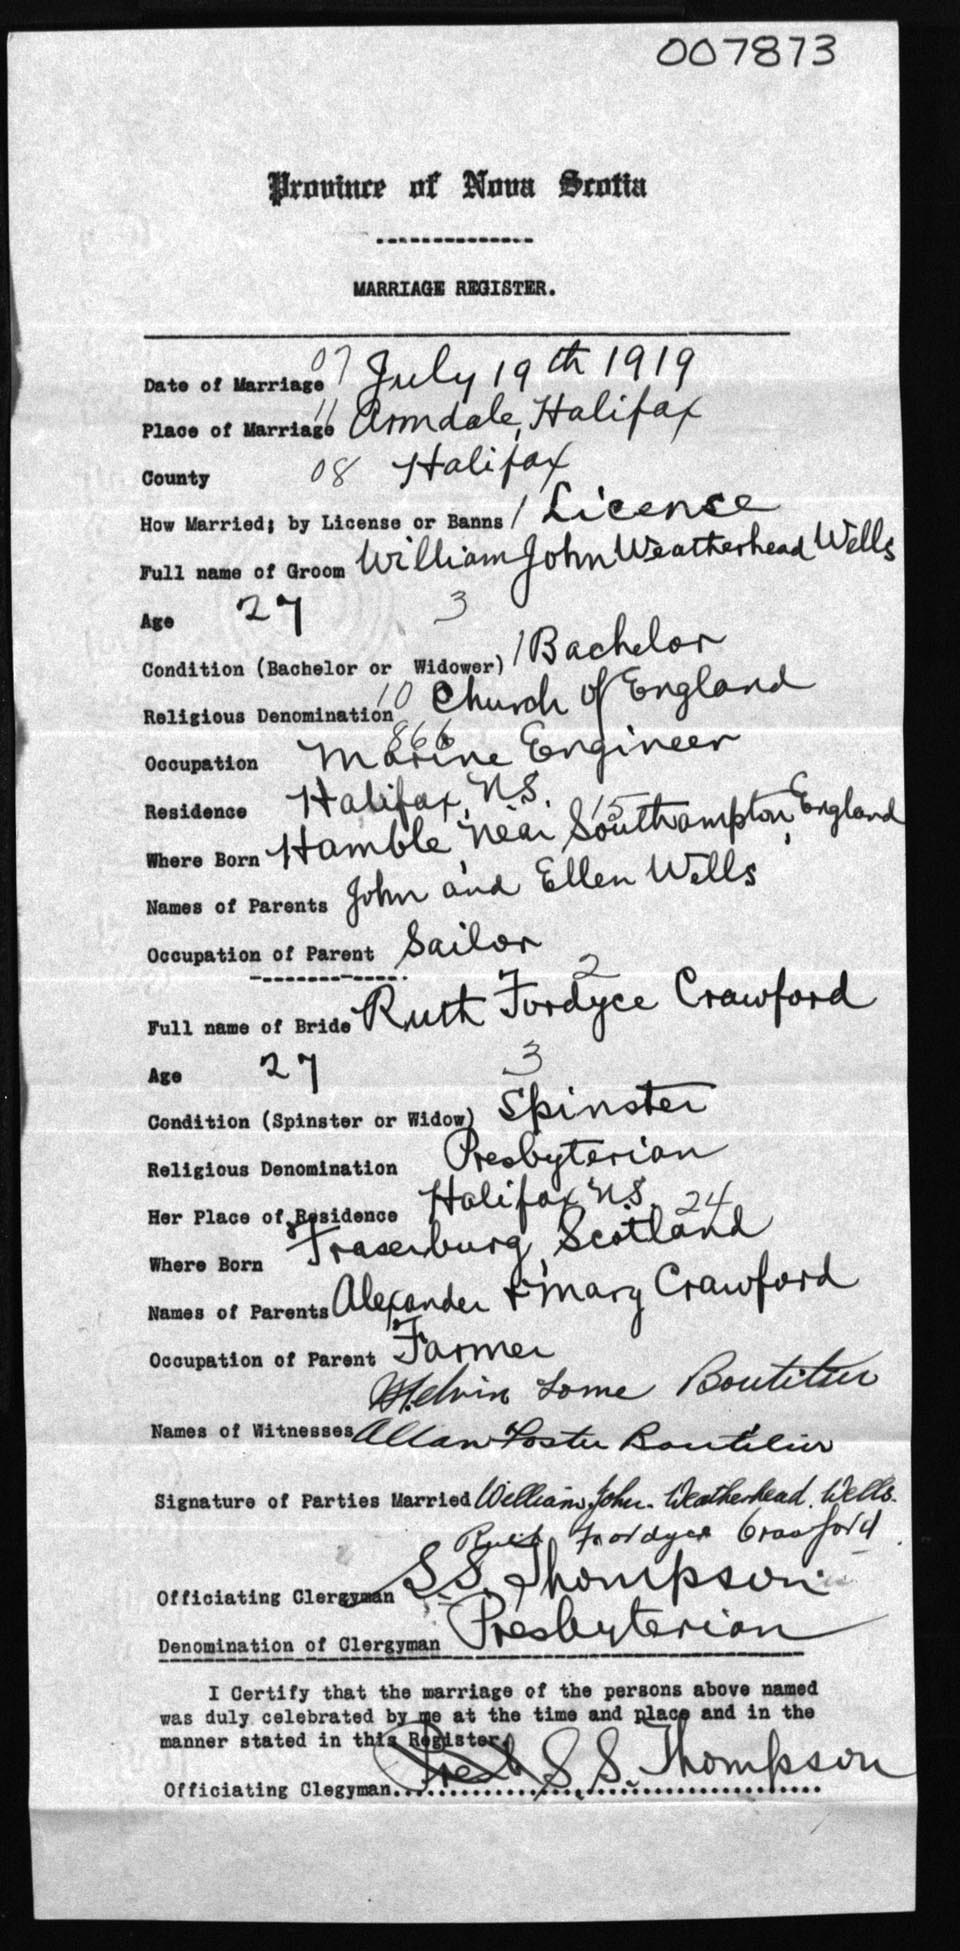 007873
Province of Nova Scotia
MARRIAGE REGISTER.
Date of Marriage 07 July 19th 1919
Place of Marriage 11 Armdale, Halifax
County 08 Halifax
How Married; by License or Banns 1 License
Full name of Groom William John Weatherhead Wells
Age 27 3
Condition (Bachelor or Widower) 1 Bachelor
Religious Denomination 10 Church of England
Occupation 866 Marine Engineer
Residence Halifax, N.S.
Where Born Hamble, near Southampton, England 15
Names of Parents John and Ellen Wells
Occupation of Parent Sailor
Full name of Bride Ruth Fordyce Crawford 2
Age 27 3
Condition (Spinster or Widow) Spinster
Religious Denomination Presbyterian
Her Place of Residence Halifax N.S.
Where Born Fraserburg, Scotland 24
Names of Parents Alexander & Mary Crawford
Occupation of Parent Farmer
Melvin Lorne Boutilier
Names of Witnesses Allan Foster Boutilier
Signature of Parties Married William John. Weatherhead. Wells.
Ruth Fordyce Crawford.
Officiating Clergyman S.S. Thompson
Denomination of Clergyman Presbyterian
I Certify that the marriage of the persons above named
was duly celebrated by me at the time and place and in the
manner stated in this Register.
Officiating Clegyman.... S S. Thompson